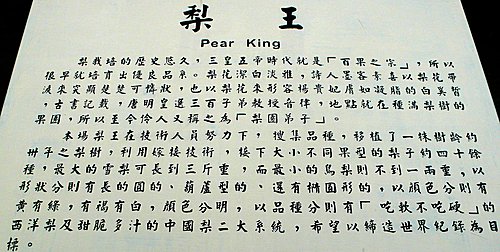 梨王
Pear King
梨栽培的歷史悠久，三皇五帝時代就是「百果之宗」，所以
很早就培育出優良品系。梨花潔白淡雅，詩人墨客素喜以梨花帶
淚來笑顰楚楚可憐狀，也以梨花來形容楊貴妃膚如凝脂的白美皙
，古書記載，唐明皇選三百子弟教授音律，地點就在種滿梨樹的
果園，所以王今伶人又稱之為「梨園弟子」。
本場梨王在技術人員努力下，搜集品種，移植了一株樹齡約
卅年之梨樹，利用嫁接技術，接下大小不同果型的梨子約四十餘
種，最大的雪梨可長到三斤重，而最小的鳥梨則不到一兩重，以
形狀分則有長的圓的、葫蘆型的、還有橢圓形的，以顏色分則有
黃有綠，有褐有白，顏色分明，以品種分則有「吃軟不吃硬」的
西洋梨及甜脆多汁的中國梨二大系統，希望以締造世界紀錄為目
標。